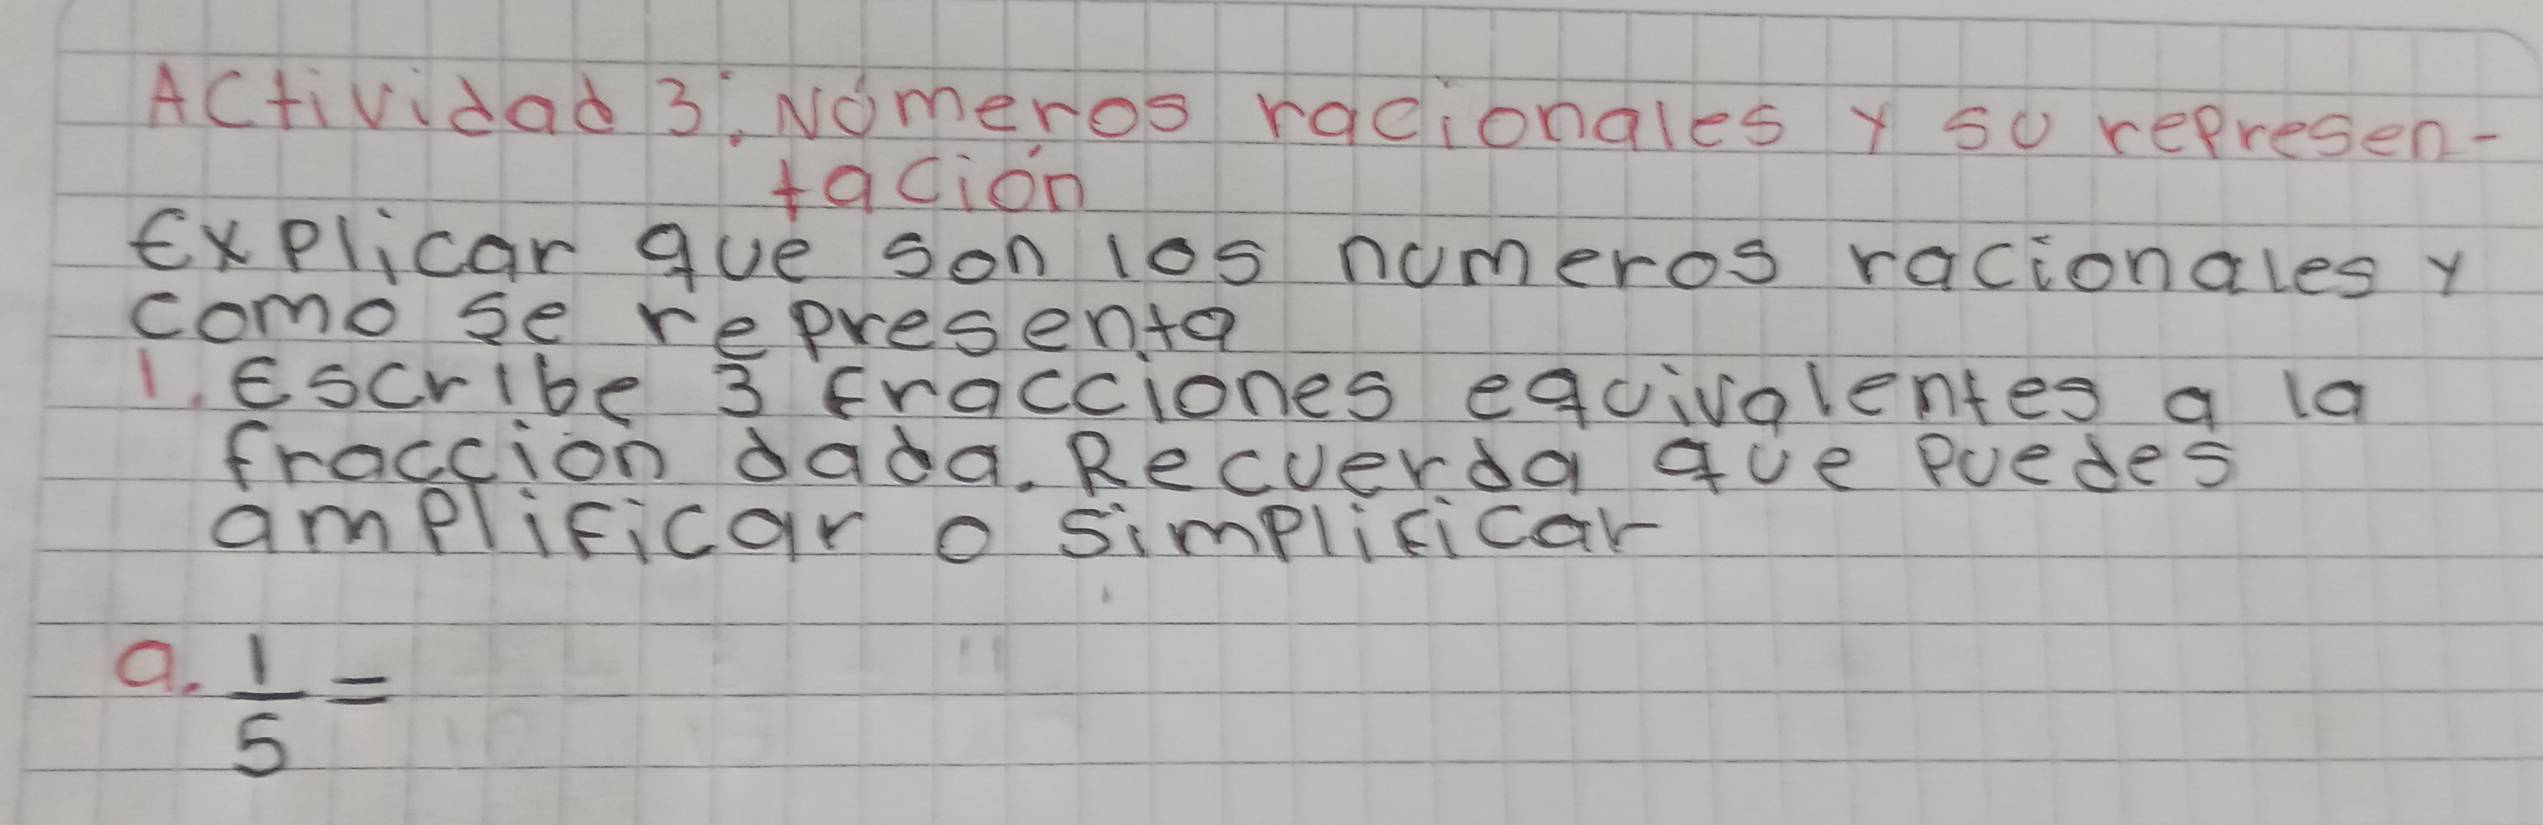 Actividad 3: Números racionales y su represen-
tación
Explicar que son los numeros racionales y
como se representa
1. Escribe 3 fracciones equivalentes a la
fraccion dada. Recuerda que puedes
amplificar o simplificar
a. 1/5 =